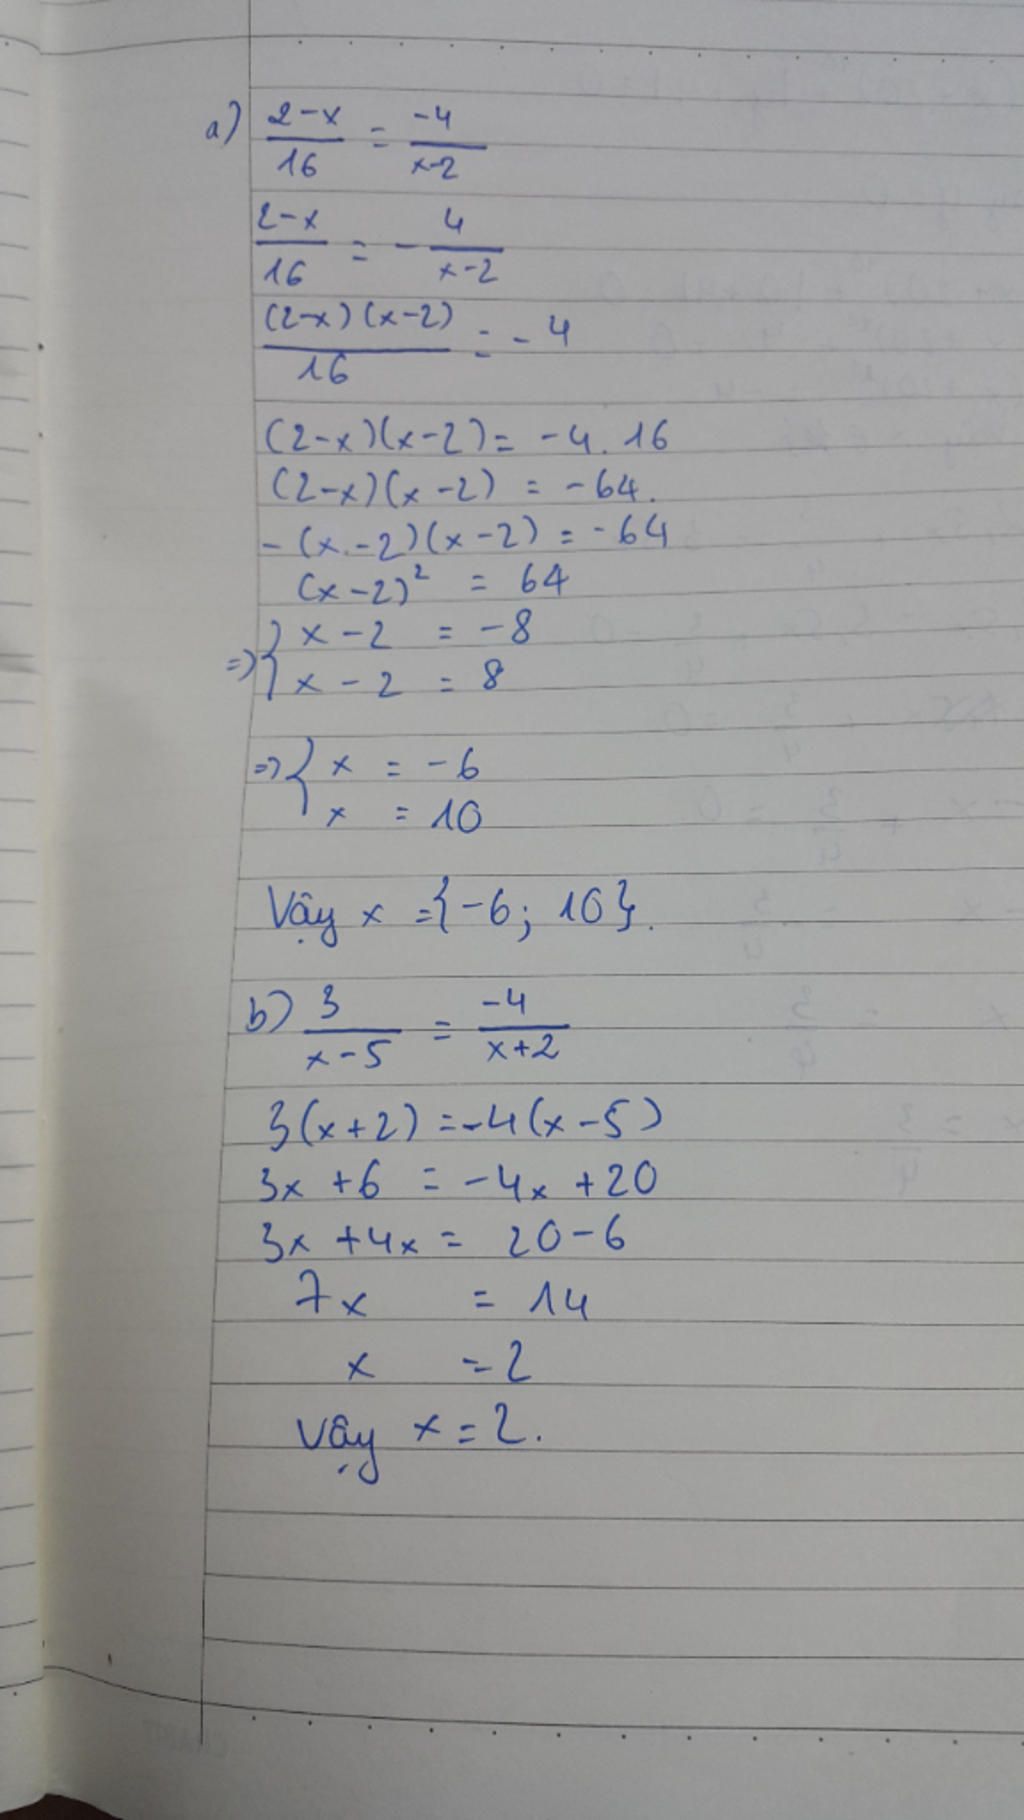 a) (2-x)/16 = -4/(x-2)
(2-x)/16 = - 4/(x-2)
(2-x)(x-2)/16 = - 4
(2-x)(x-2) = -4. 16
(2-x)(x-2) = -64.
-(x-2)(x-2) = -64
(x-2)² = 64
=> { x - 2 = -8
x - 2 = 8
=> { x = -6
x = 10
Vậy x = {-6; 10}.
b) 3/(x-5) = -4/(x+2)
3(x+2) = -4(x-5)
3x +6 = -4x +20
3x +4x = 20-6
7x = 14
x = 2
Vậy x = 2.